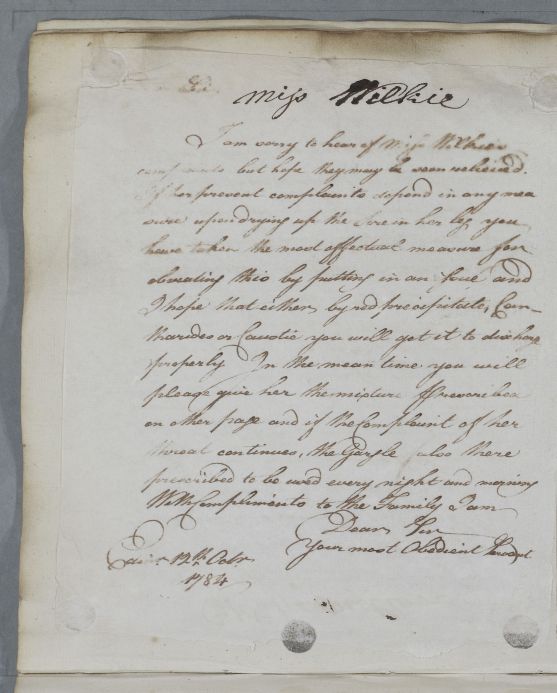 Sir
Miss Wilkie
I am sorry to hear of Miss Wilkie's
complaints but hope they may be soon relieved.
If her present complaints depend in any mea
sure upon drying up the sore in her leg you
have taken the most effectual measure for
obviating this by putting in an issue and
I hope that either by red precipitate, Can-
tharides or Caustic you will get it to discharge
properly. In the mean time you will
please give her the mixture prescribed
on other page and if the Complaint of her
throat continues, the Gargle also there
prescribed to be used every night and morning
With Compliments to the Family I am
Dear Sir
Your most Obedient Servant
Edinr. 12th Octr.
1784